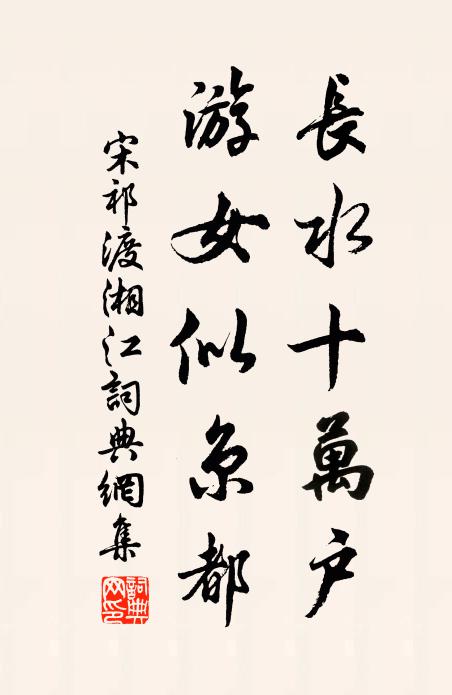 長水十萬戶
游女似京都
宋祁渡湘江詞典網集
詞典
网印